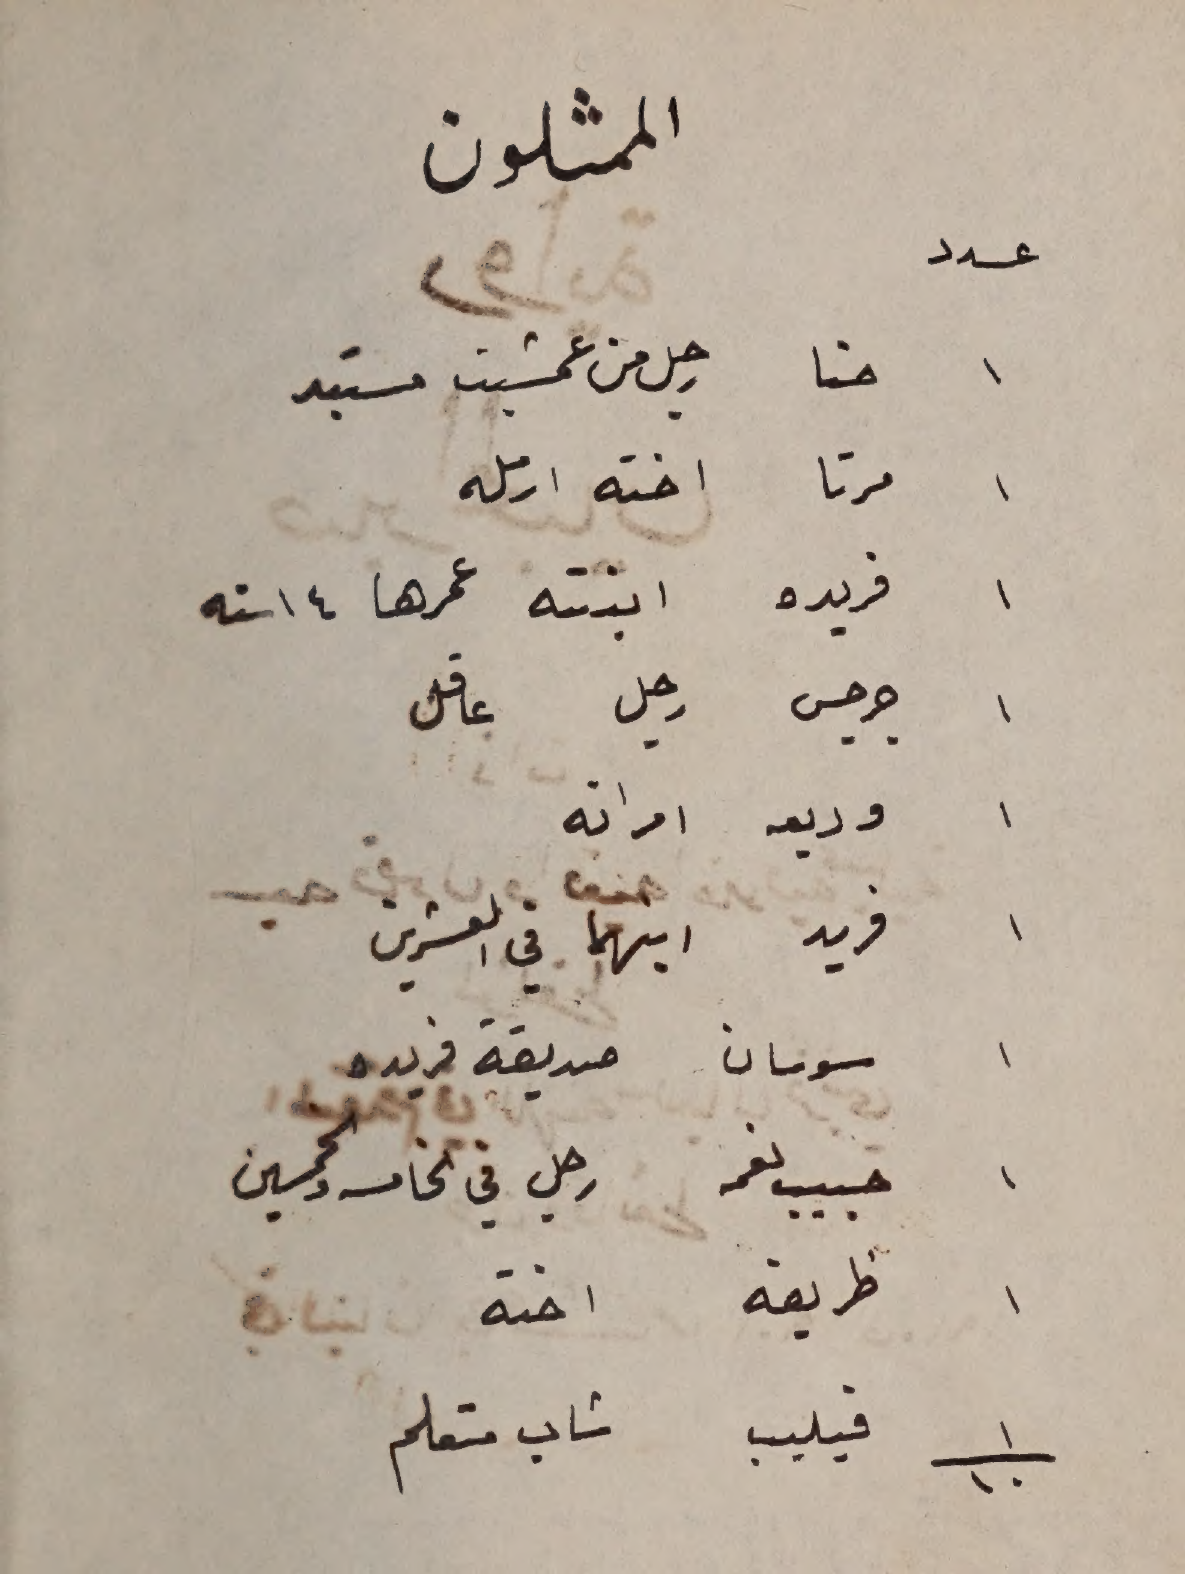 الممثلون
عدد
١ حنا رجل من عمشيت مستبد
١ مرتا اخته ارمله
١ فريده ابنته عمرها ١٤ سنه
١ جرجس رجل عاقل
١ وديعه امراته
١ فريد ابنهما في العشرين
١ سوسان صديقة فريده
١ حبيب نعمه رجل في الخامسه والخمسين
١ ظريفه اخته
١ فيليب شاب متعلم
١٠